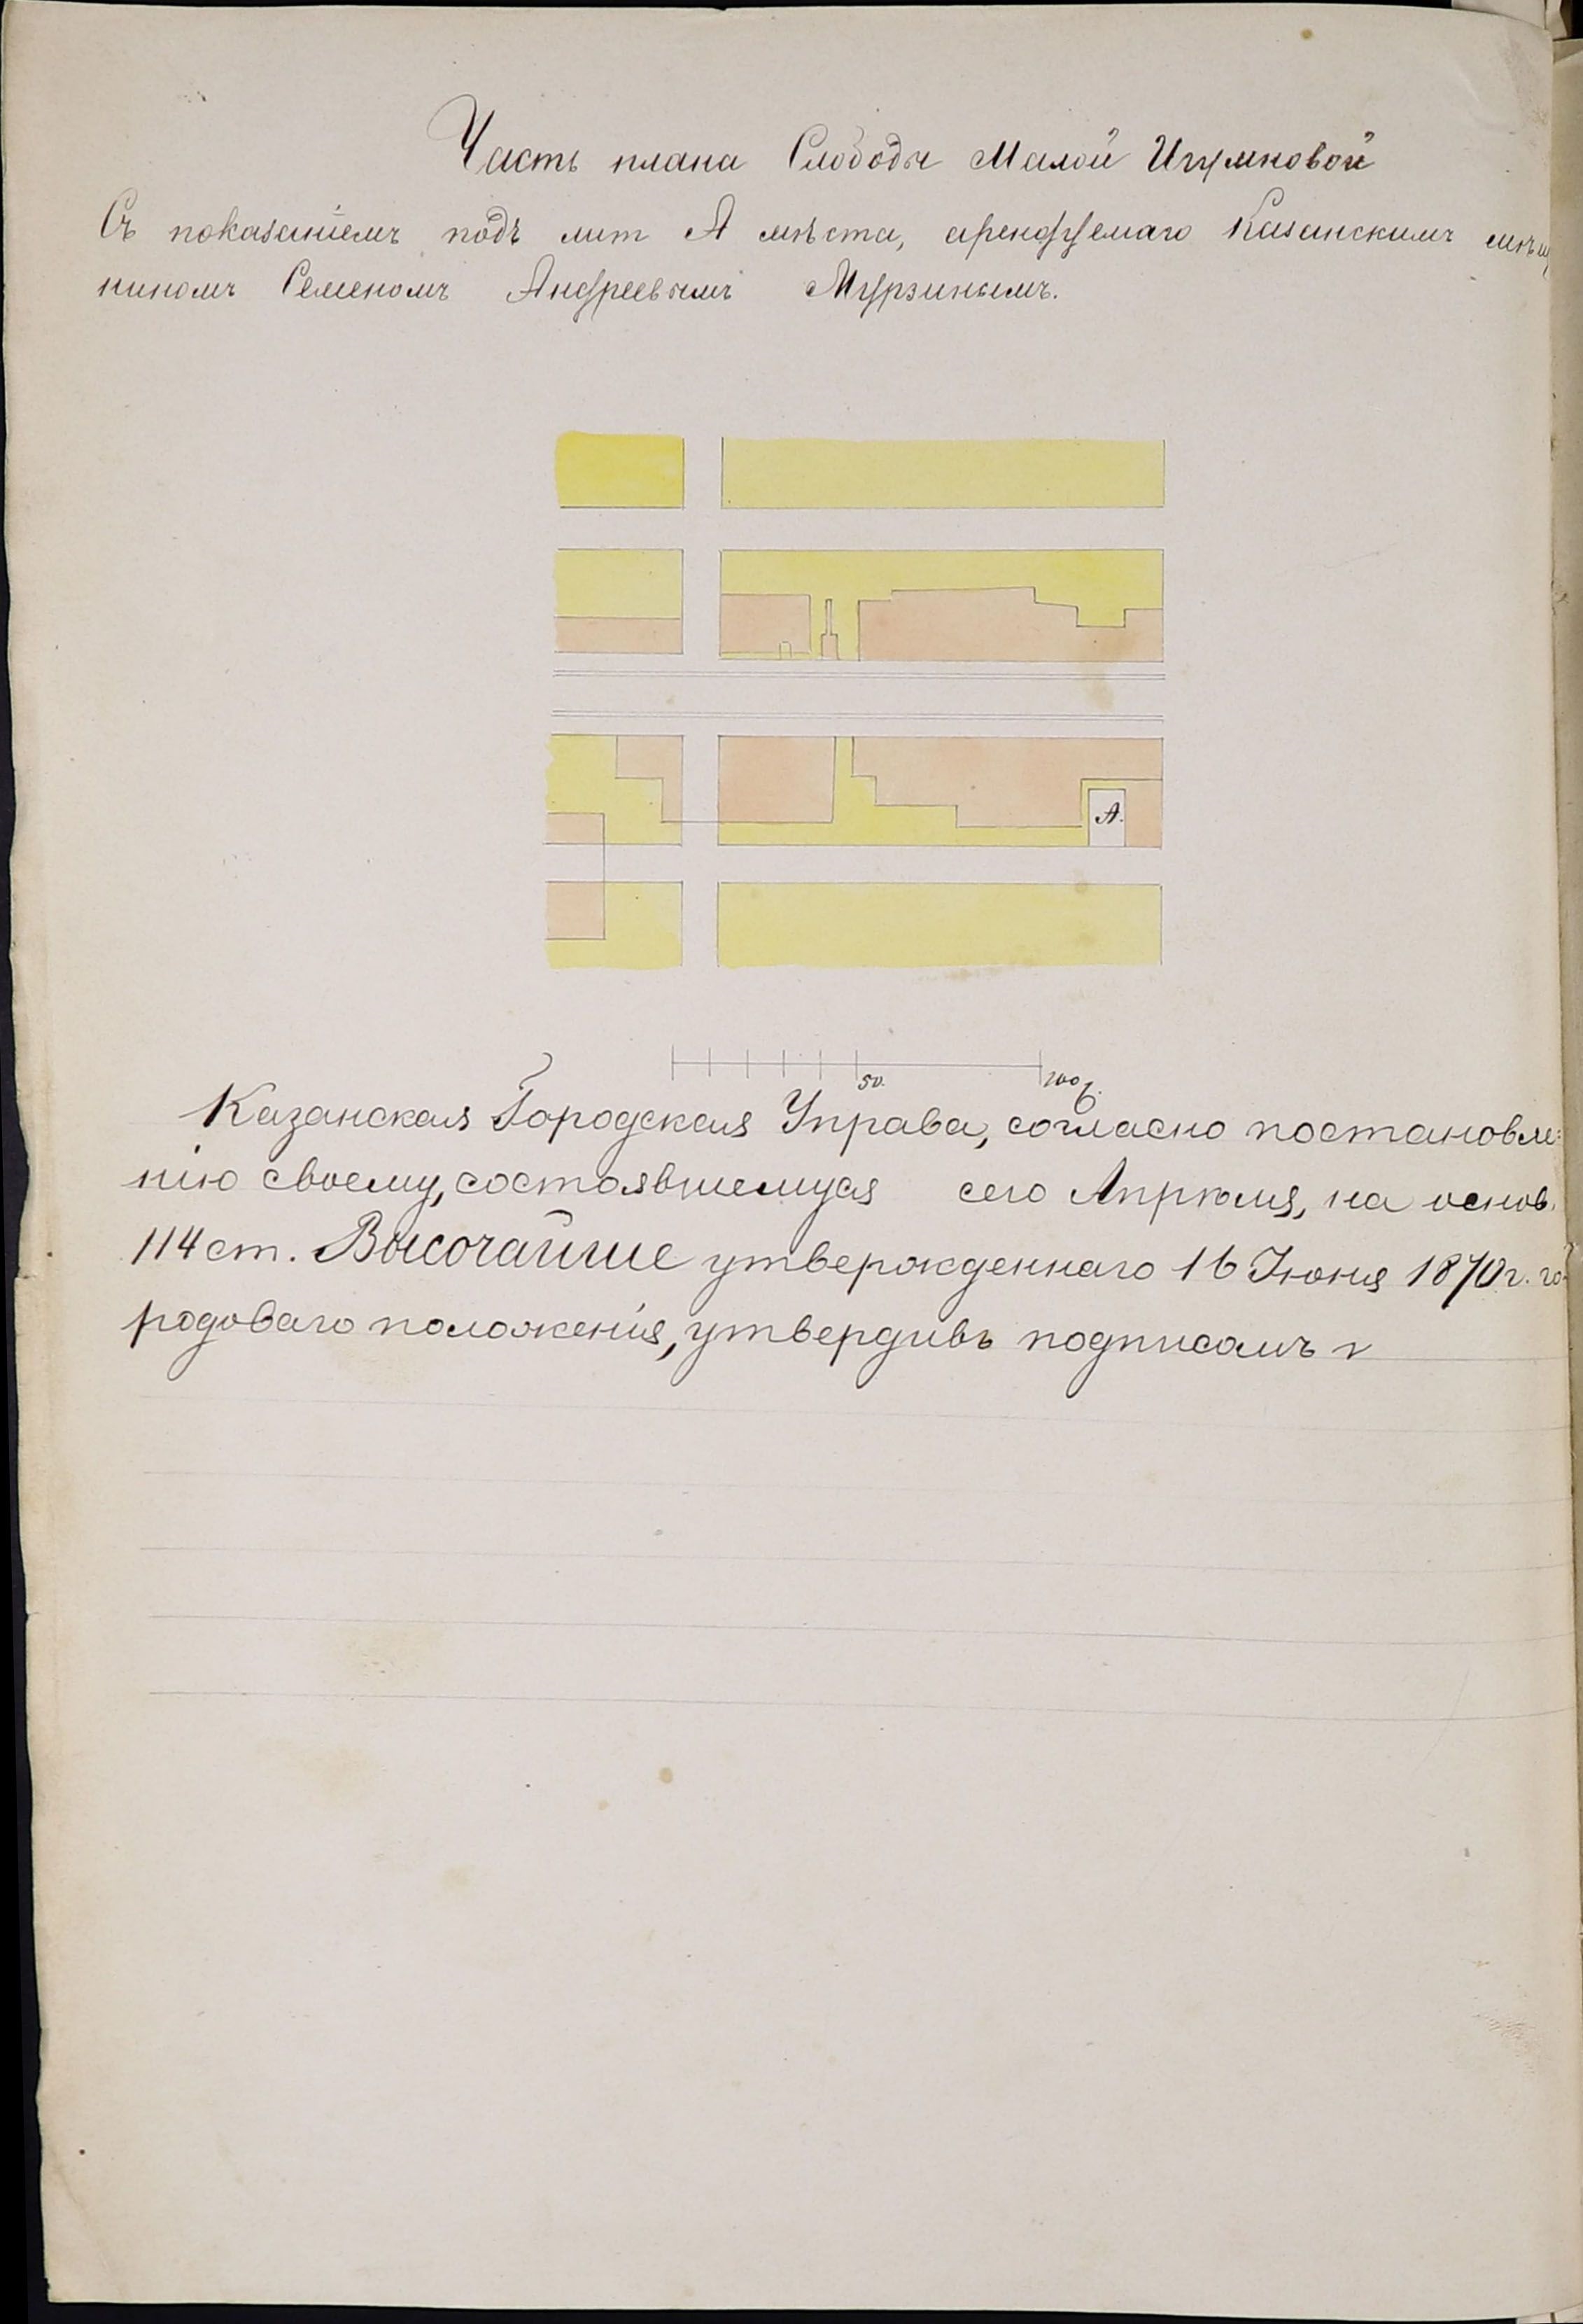 Часть плана Слободы Малой Игумновой
Съ показаніемъ подъ лит А мѣста, арендуемаго Казанскимъ мѣщ
ниномъ Семеномъ Андреевымъ Мурзинымъ.
А.
50. 100
Казанская Городская Управа, согласно постановле=
нію своему, состоявшемуся сего Апрѣля, на основ.
114 ст. Высочайше утвержденнаго 16 Іюня 1870 г. го-
родоваго положенія, утвердивъ подписомъ